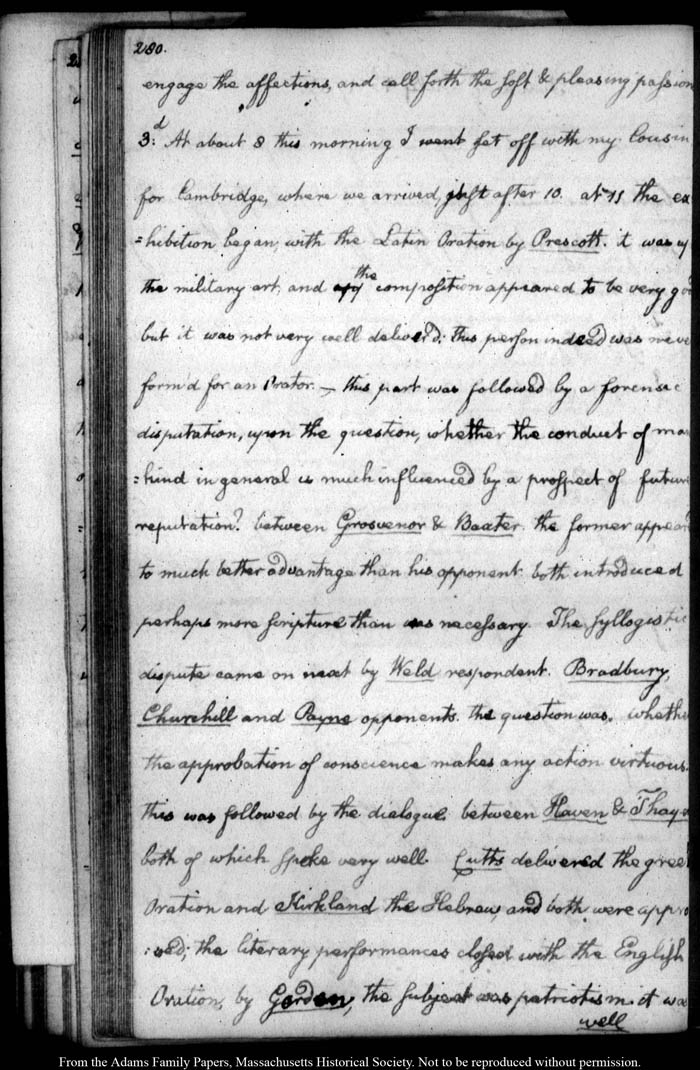 280.
engage the affections, and call forth the soft & pleasing passion
3:d At about 8 this morning I went set off with my Cousin
for Cambridge, where we arrived, just after 10. at 11 the ex
=hibition began, with the Latin Oration by Prescott. it was up
the military art, and the composition appeared to be very go
but it was not very well deliver'd: this person indeed was neve
form'd for an Orator. — this part was followed by a forensic
disputation, upon the question, whether the conduct of man
=kind in general is much influenced by a prospect of future
reputation? between Grosvenor & Baxter. the former appear'
to much better advantage than his opponent. both introduced
perhaps more scripture than was necessary. The syllogistic
dispute came on next by Weld respondent. Bradbury,
Churchill and Payne opponents. the question was. whethe
the approbation of conscience makes any action virtuous.
this was followed by the dialogue between Haven & Thay
both of which spoke very well. Cutts delivered the gree
Oration and Kirkland the Hebrew, and both were appro
:ved; the literary performances closed with the English
Oration, by Gordon, the subject was patriotism. it wa
well
From the Adams Family Papers, Massachusetts Historical Society. Not to be reproduced without permission.